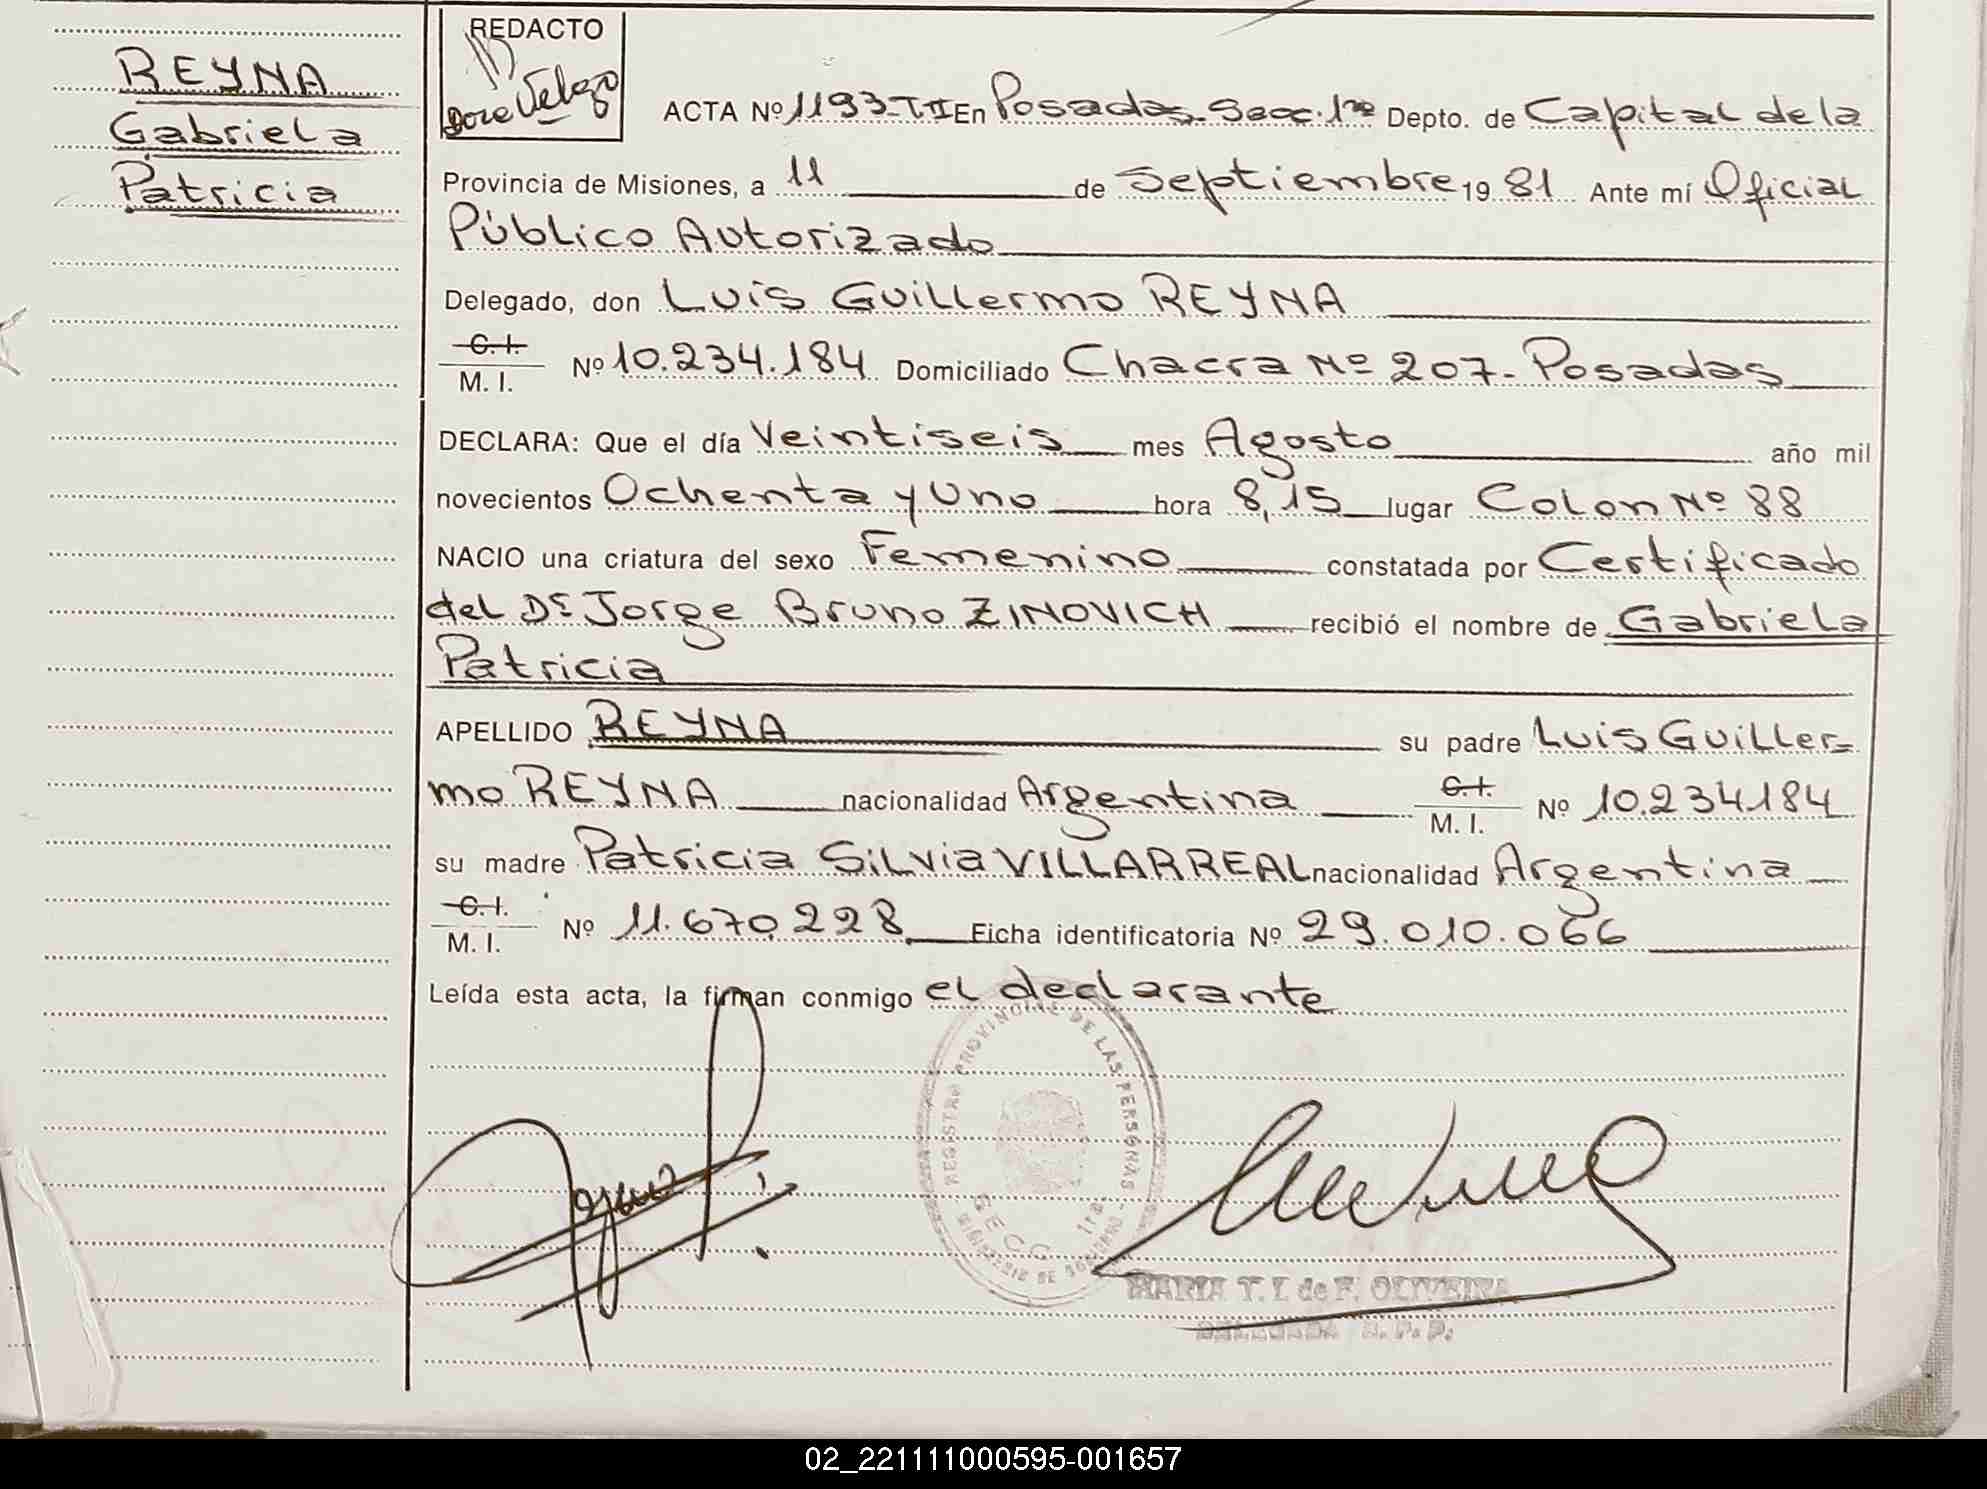 REYNA
Gabriela
Patricia
REDACTO
Jose Velozo
ACTA Nº 1193-T-II En Posadas-Secc. 1ra Depto. de Capital de la
Provincia de Misiones, a 11 de Septiembre 19 81 Ante mí Oficial
Público Autorizado
Delegado, don Luis Guillermo REYNA
C. I.
M. I. Nº 10.234.184 Domiciliado Chacra Nº 207- Posadas
DECLARA: Que el día Veintiseis mes Agosto año mil
novecientos Ochenta y Uno hora 8,15 lugar Colon Nº 88
NACIO una criatura del sexo Femenino constatada por Certificado
del Dr Jorge Bruno ZINOVICH recibió el nombre de Gabriela
Patricia
APELLIDO REYNA su padre Luis Guiller=
mo REYNA nacionalidad Argentina C. I. M. I. Nº 10.234184
su madre Patricia Silvia VILLARREAL nacionalidad Argentina
C. I.
M. I. Nº 11.670.228 Ficha identificatoria Nº 29.010.066
Leída esta acta, la firman conmigo el declarante
REGISTRO PROVINCIAL DE LAS PERSONAS
MINISTERIO DE GOBIERNO
SECC. 1ra
MARIA T. I. de F. OLIVEIRA
DELEGADA R. P. P.
02_221111000595-001657